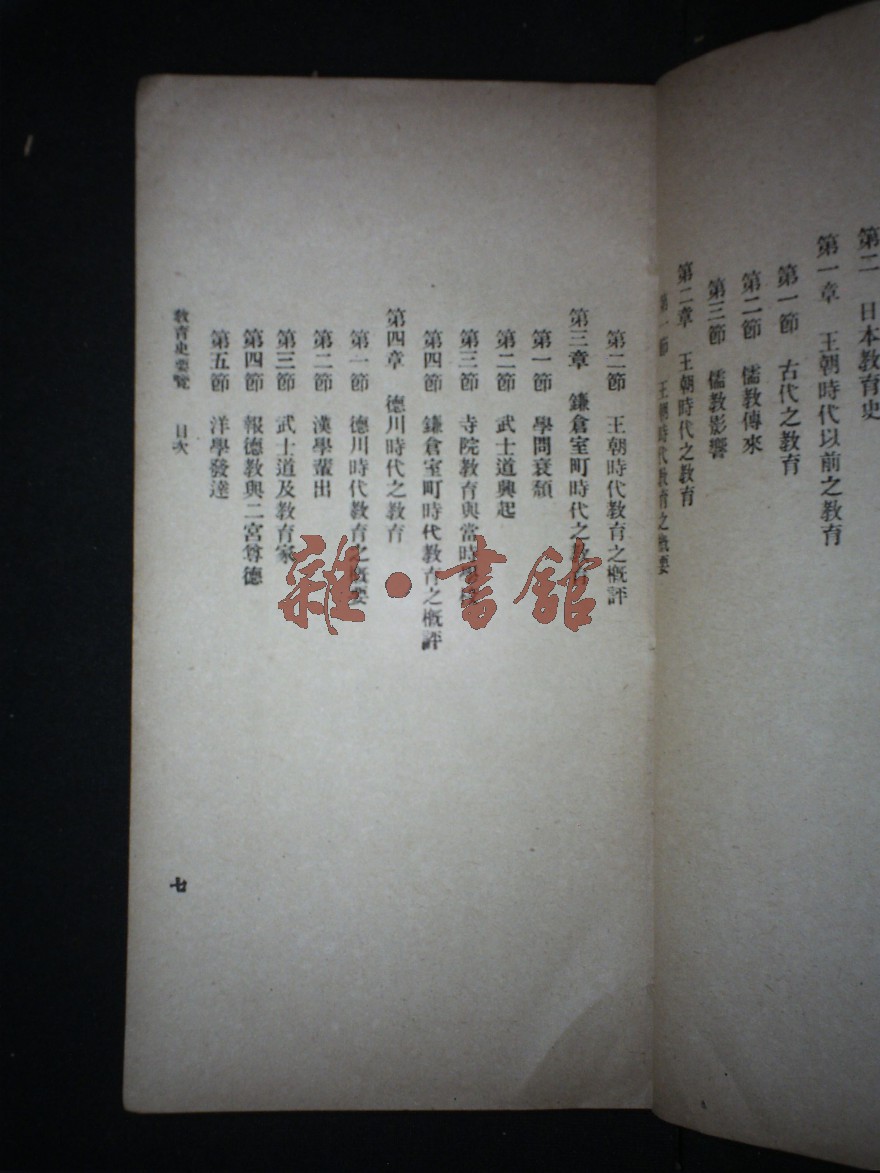 第二 日本教育史
第一章 王朝時代以前之教育
第一節 古代之教育
第二節 儒教傳來
第三節 儒教影響
第二章 王朝時代之教育
第一節 王朝時代教育之概要
第二節 王朝時代教育之概評
第三章 鎌倉室町時代之
第一節 學問衰頹
第二節 武士道興起
第三節 寺院教育與當時
第四節 鎌倉室町時代教育之概評
第四章 德川時代之教育
第一節 德川時代教育之概要
第二節 漢學輩出
第三節 武士道及教育家
第四節 報德教與二宮尊德
第五節 洋學發達
教育史要覽 目次
七
雜·書館